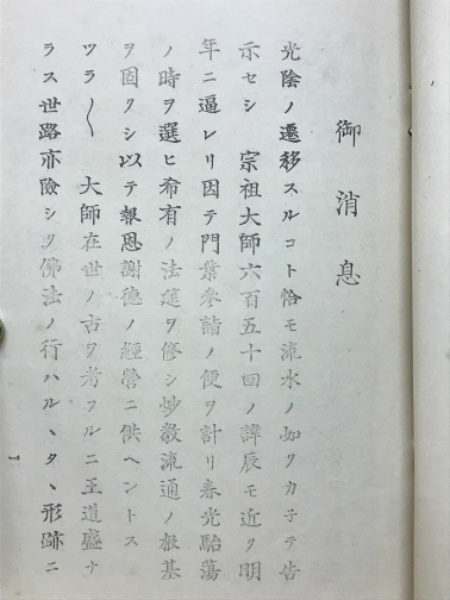 御消息
光陰ノ遷移スルコト恰モ流水ノ如クカ子テ告
示セシ　宗祖大師六百五十回ノ諱辰モ近ク明
年ニ逼レリ因テ門葉參詣ノ便ヲ計リ春光駘蕩
ノ時ヲ選ヒ希有ノ法筵ヲ修シ妙教流通ノ根基
ヲ固クシ以テ報恩謝徳ノ經營ニ供ヘントス
ツラ〱　大師在世ノ古ヲ考フルニ王道盛ナ
ラス世路亦險シク佛法ノ行ハルヽタヽ形跡ニ